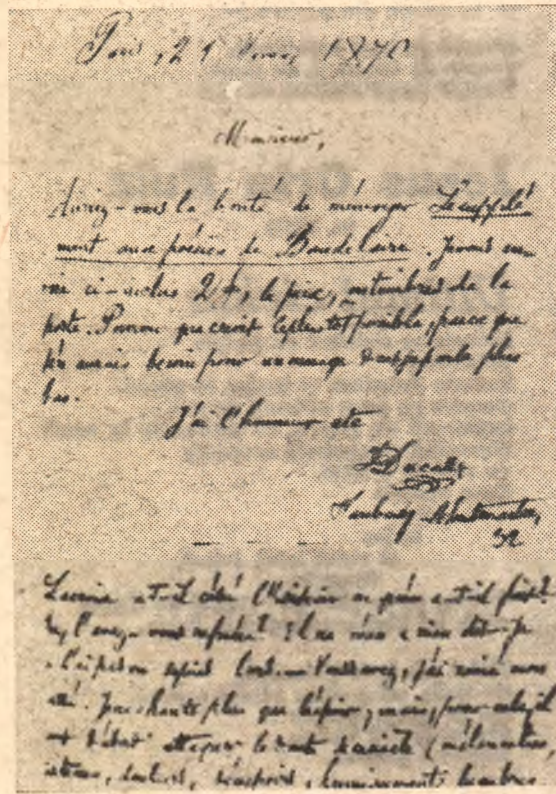 Paris, 21 1870
Monsieur,
Auriez-vous la bonté de m'envoyer Le supplé
ment aux poésies de Baudelaire. Je vous en
voie ci-inclus 2 f, le prix, en timbres de la
poste. Pourvu que ce soit le plus tôt possible, parce que
j'en aurais besoin pour un ouvrage dont je parle plus
bas.
J'ai l'honneur etc
I. Ducasse
Faubourg Montmartre,
32
Lacroix a-t-il cédé l'édition ou qu'en a-t-il fait?
ou, l'avez-vous refusée? Il ne m'en a rien dit. Je
ne l'ai pas vu depuis lors. Vous savez, j'ai renié mon
passé. Je ne chante plus que l'espoir; mais, pour cela, il
faut d'abord attaquer le doute de ce siècle (mélancolies,
tristesses, douleurs, désespoirs, hennissements lugubres